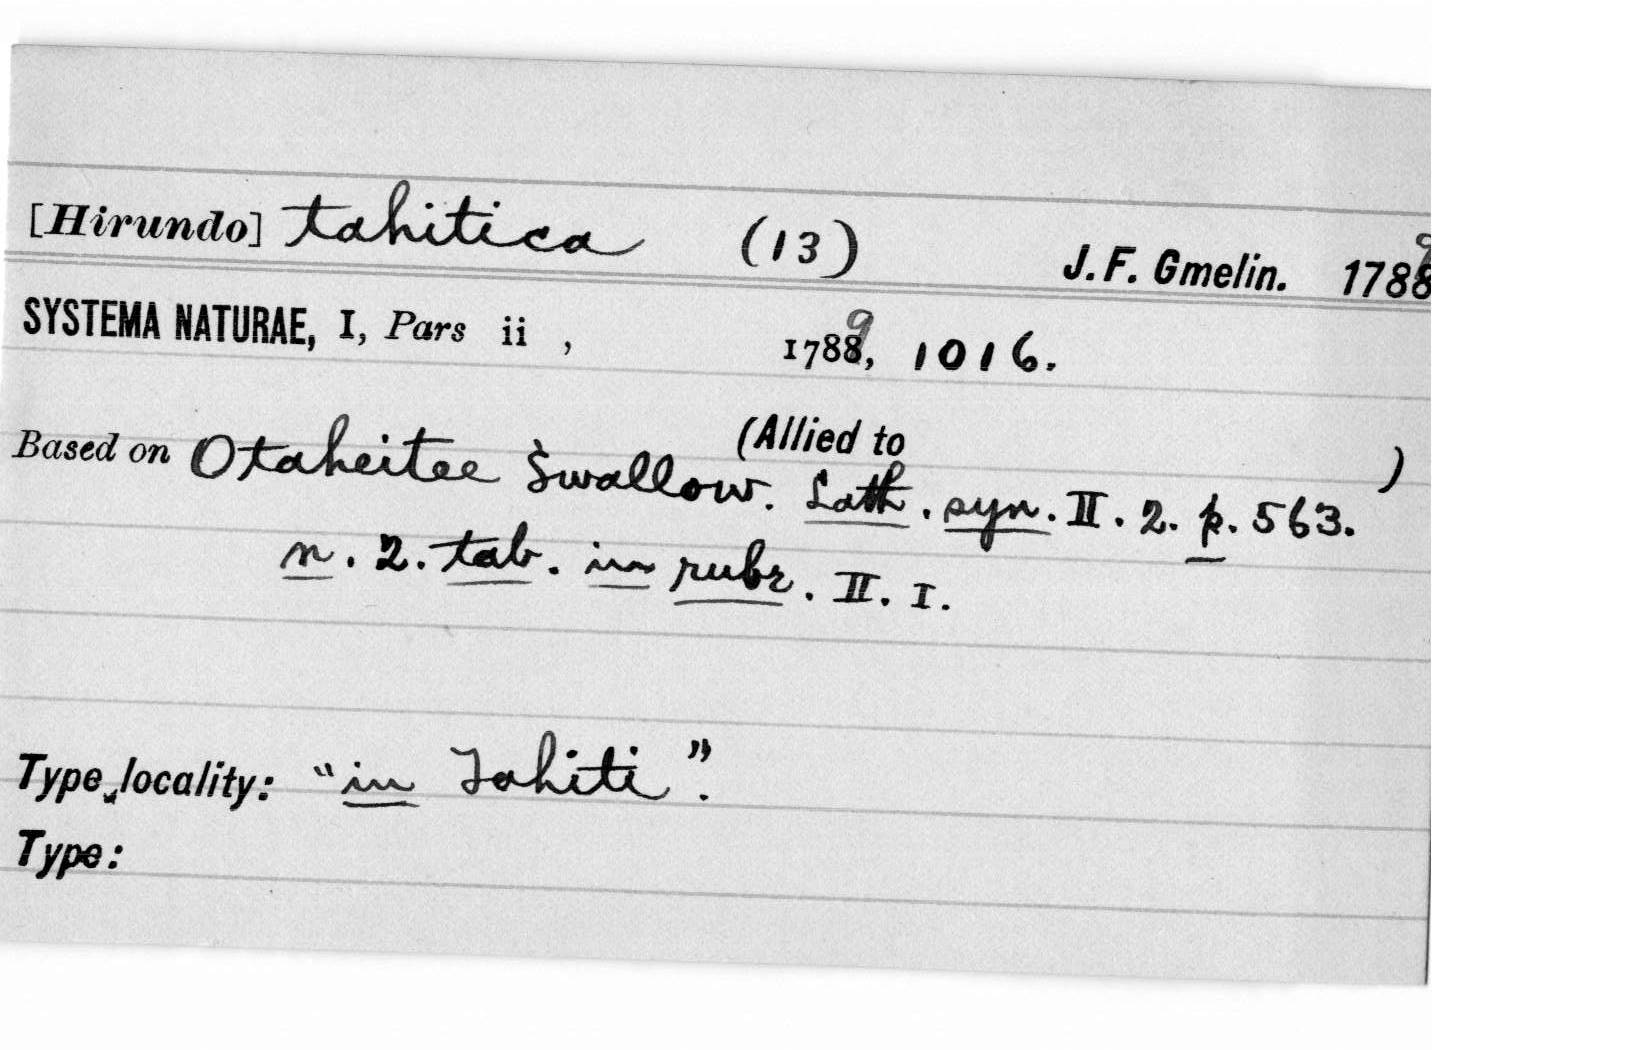 [Hirundo] tahitica (13) J. F. Gmelin. 1789
SYSTEMA NATURAE, I, Pars ii , 1789, 1016.
(Allied to )
Based on Otaheitee Swallow. Lath. syn. II. 2. p. 563.
n. 2. tab. in rubr. II. I.
Type locality: "in Tahiti".
Type: